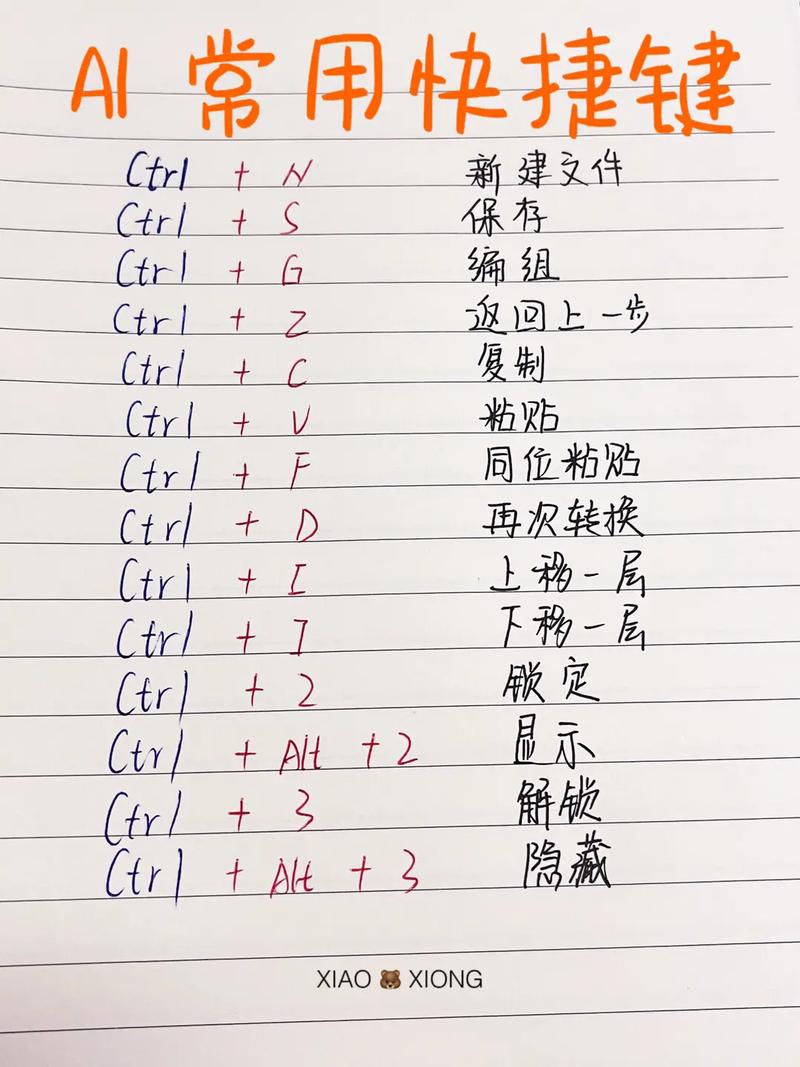 AI 常用快捷键
Ctrl + N 新建文件
Ctrl + S 保存
Ctrl + G 编组
Ctrl + Z 返回上一步
Ctrl + C 复制
Ctrl + V 粘贴
Ctrl + F 同位粘贴
Ctrl + D 再次转换
Ctrl + I 上移一层
Ctrl + I 下移一层
Ctrl + 2 锁定
Ctrl + Alt + 2 显示
Ctrl + 3 解锁
Ctrl + Alt + 3 隐藏
XIAO 🐻 XIONG